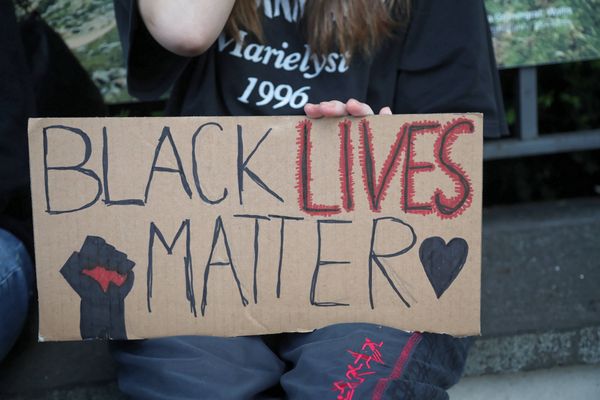 Marielyst
1996
BLACK LIVES
MATTER